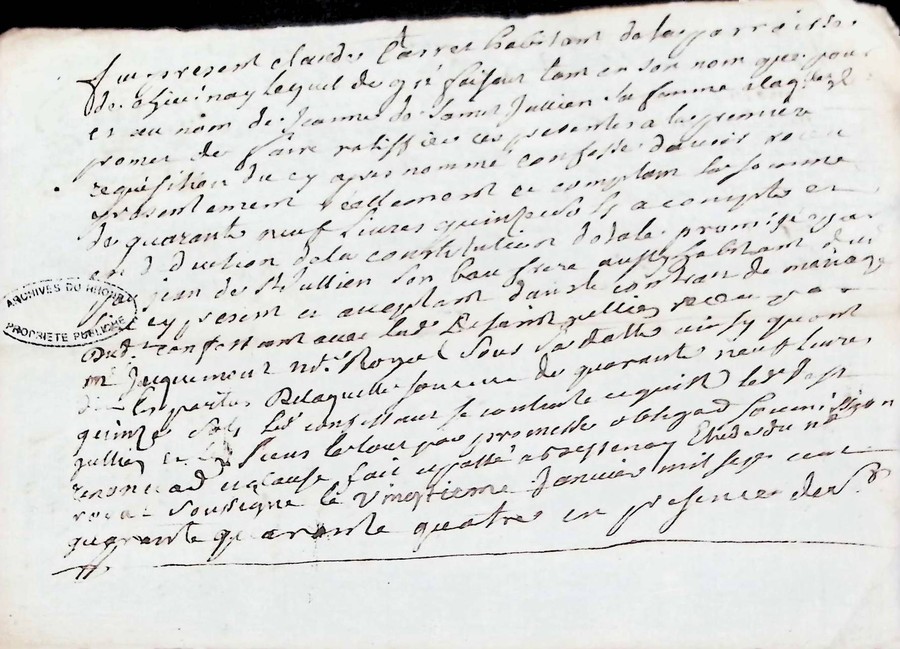 fut present claude Carret habitant de la parroisse
de lequel de gré faisant tant en son nom que pour
et au nom de Jeanne de Saint Jullien sa femme a laquelle
promet de faire ratiffier ces presentes a la premiere
requisition du cy apres nommé confesse d'avoir receu
presentement reallement et comptant la somme
de quarante neuf livres quinze sols a compte et
en deduction de la constitution dotale promise par
jean de St Jullien son beau frere aussy habitant dud
cy present et acceptant dans le contrat de mariage
dud. confessant avec lad. De saint Jullien receu par
me Jacquemont nre Royal sous sa datte ainsy quont
dit les parties De laquelle somme de quarante neuf livres
quinze sols led confessant se contente et quitte led St
Jullien et les Siens le tout par promesse obligaon Soumission
renonciaon et clause fait et passé a Etude du nre
royal soussigné le vingtieme Janvier mil sept cent
quarante quarante quatre en presence de Sr
ARCHIVES DU RHONE
PROPRIETE PUBLIQUE